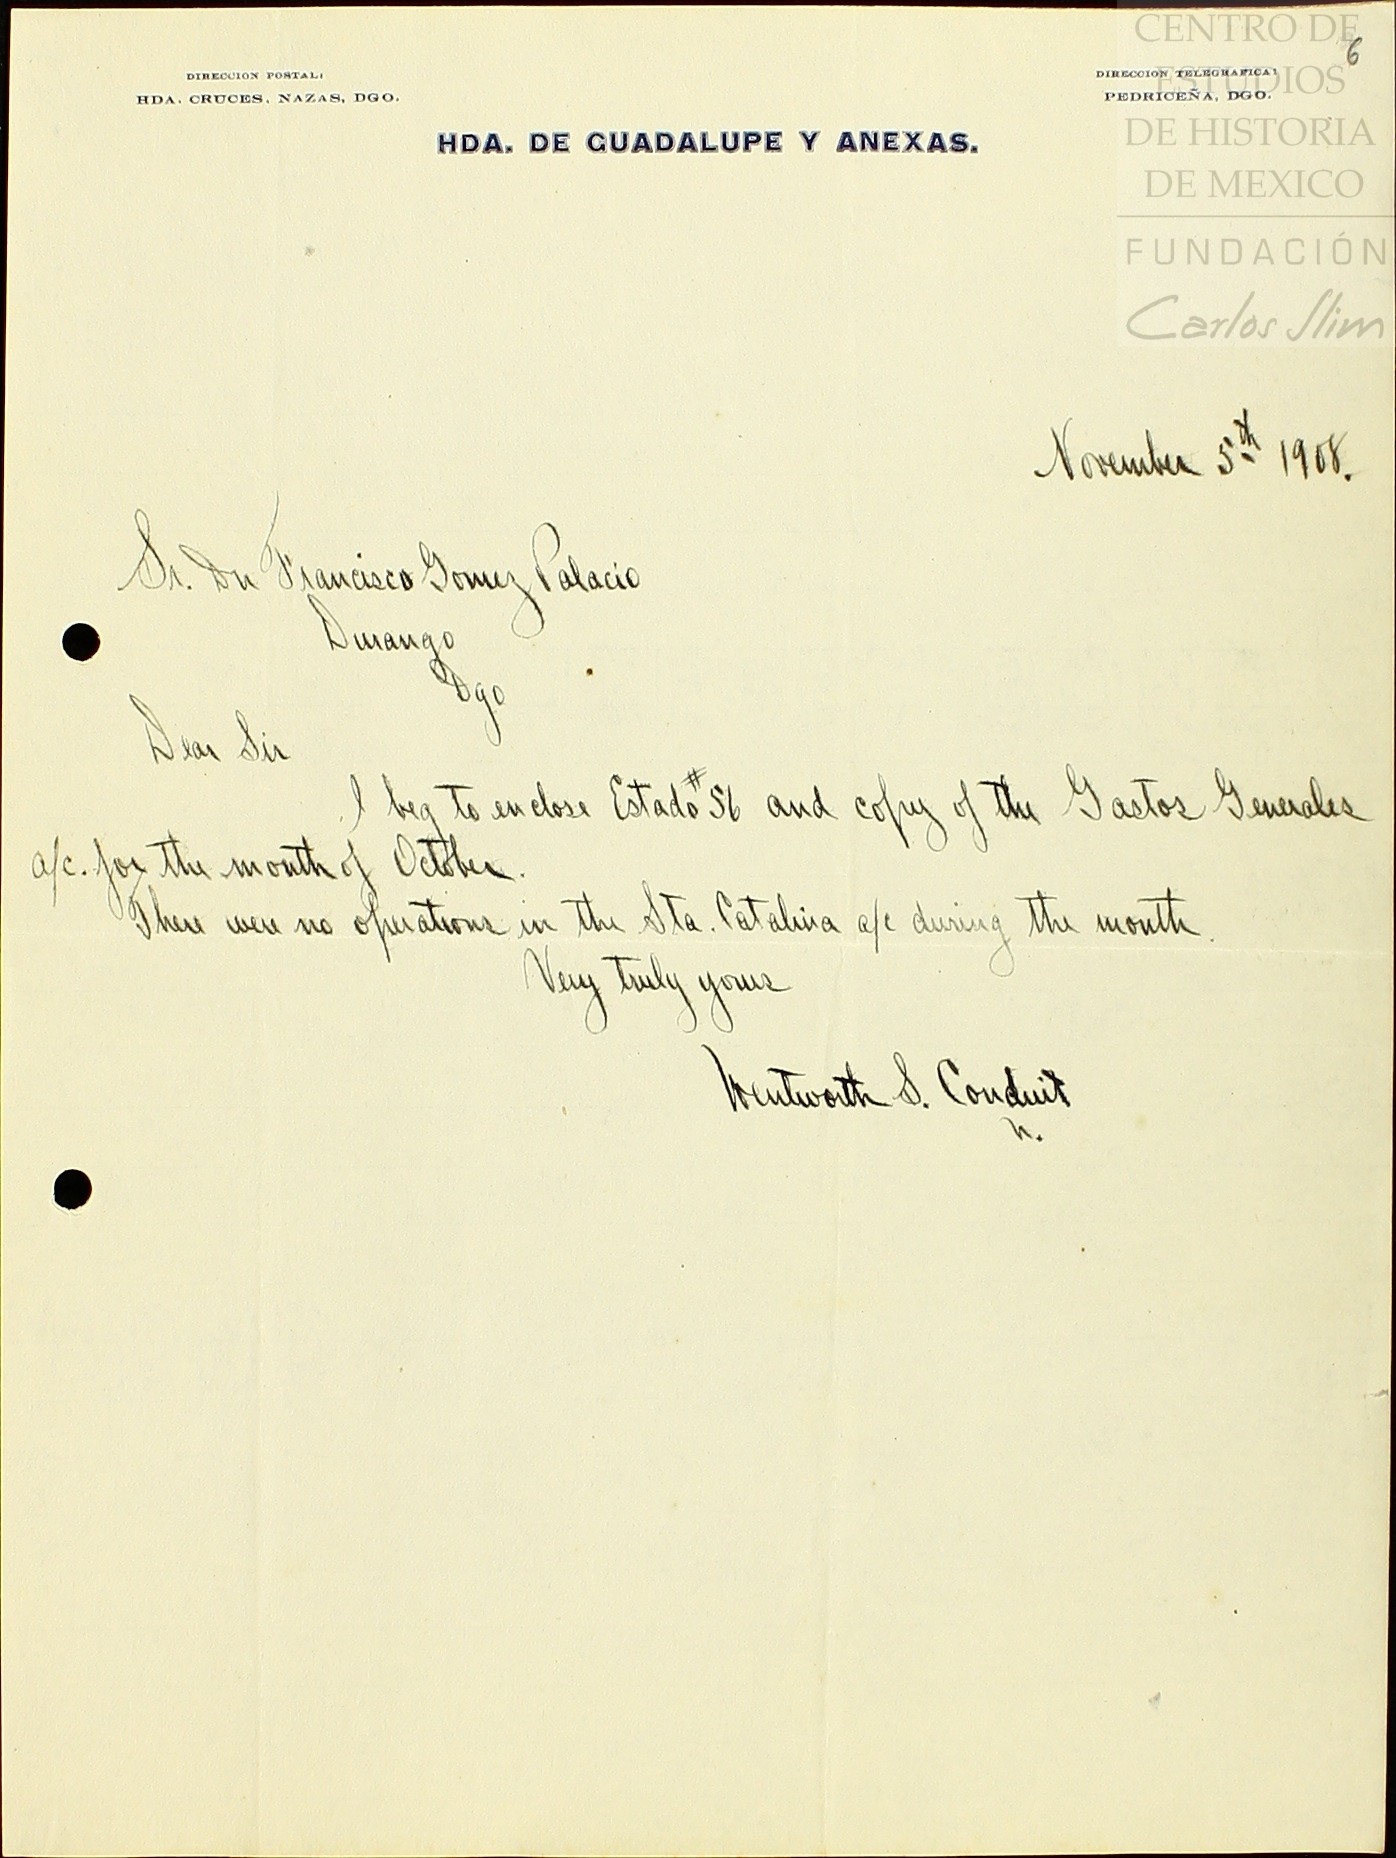 6
DIRECCION POSTAL:
HDA. CRUCES, NAZAS, DGO.
DIRECCION TELEGRAFICA:
PEDRICEÑA, DGO.
HDA. DE GUADALUPE Y ANEXAS.
CENTRO DE
ESTUDIOS
DE HISTORIA
DE MEXICO
FUNDACIÓN
Carlos Slim
November 5th 1908.
Sr. Dn Francisco Gomez Palacio
Durango
Dgo
Dear Sir
I beg to enclose Estado #56 and copy of the Gastos Generales
a/c. for the month of October.
There were no operations in the Sta. Catalina a/c during the month.
Very truly yours
Wentworth S. Conduit